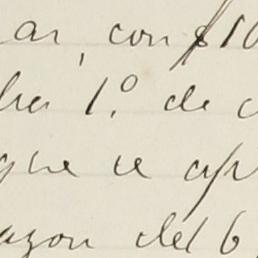 ar, con $10
bre 1.º de
que se
azon del 6